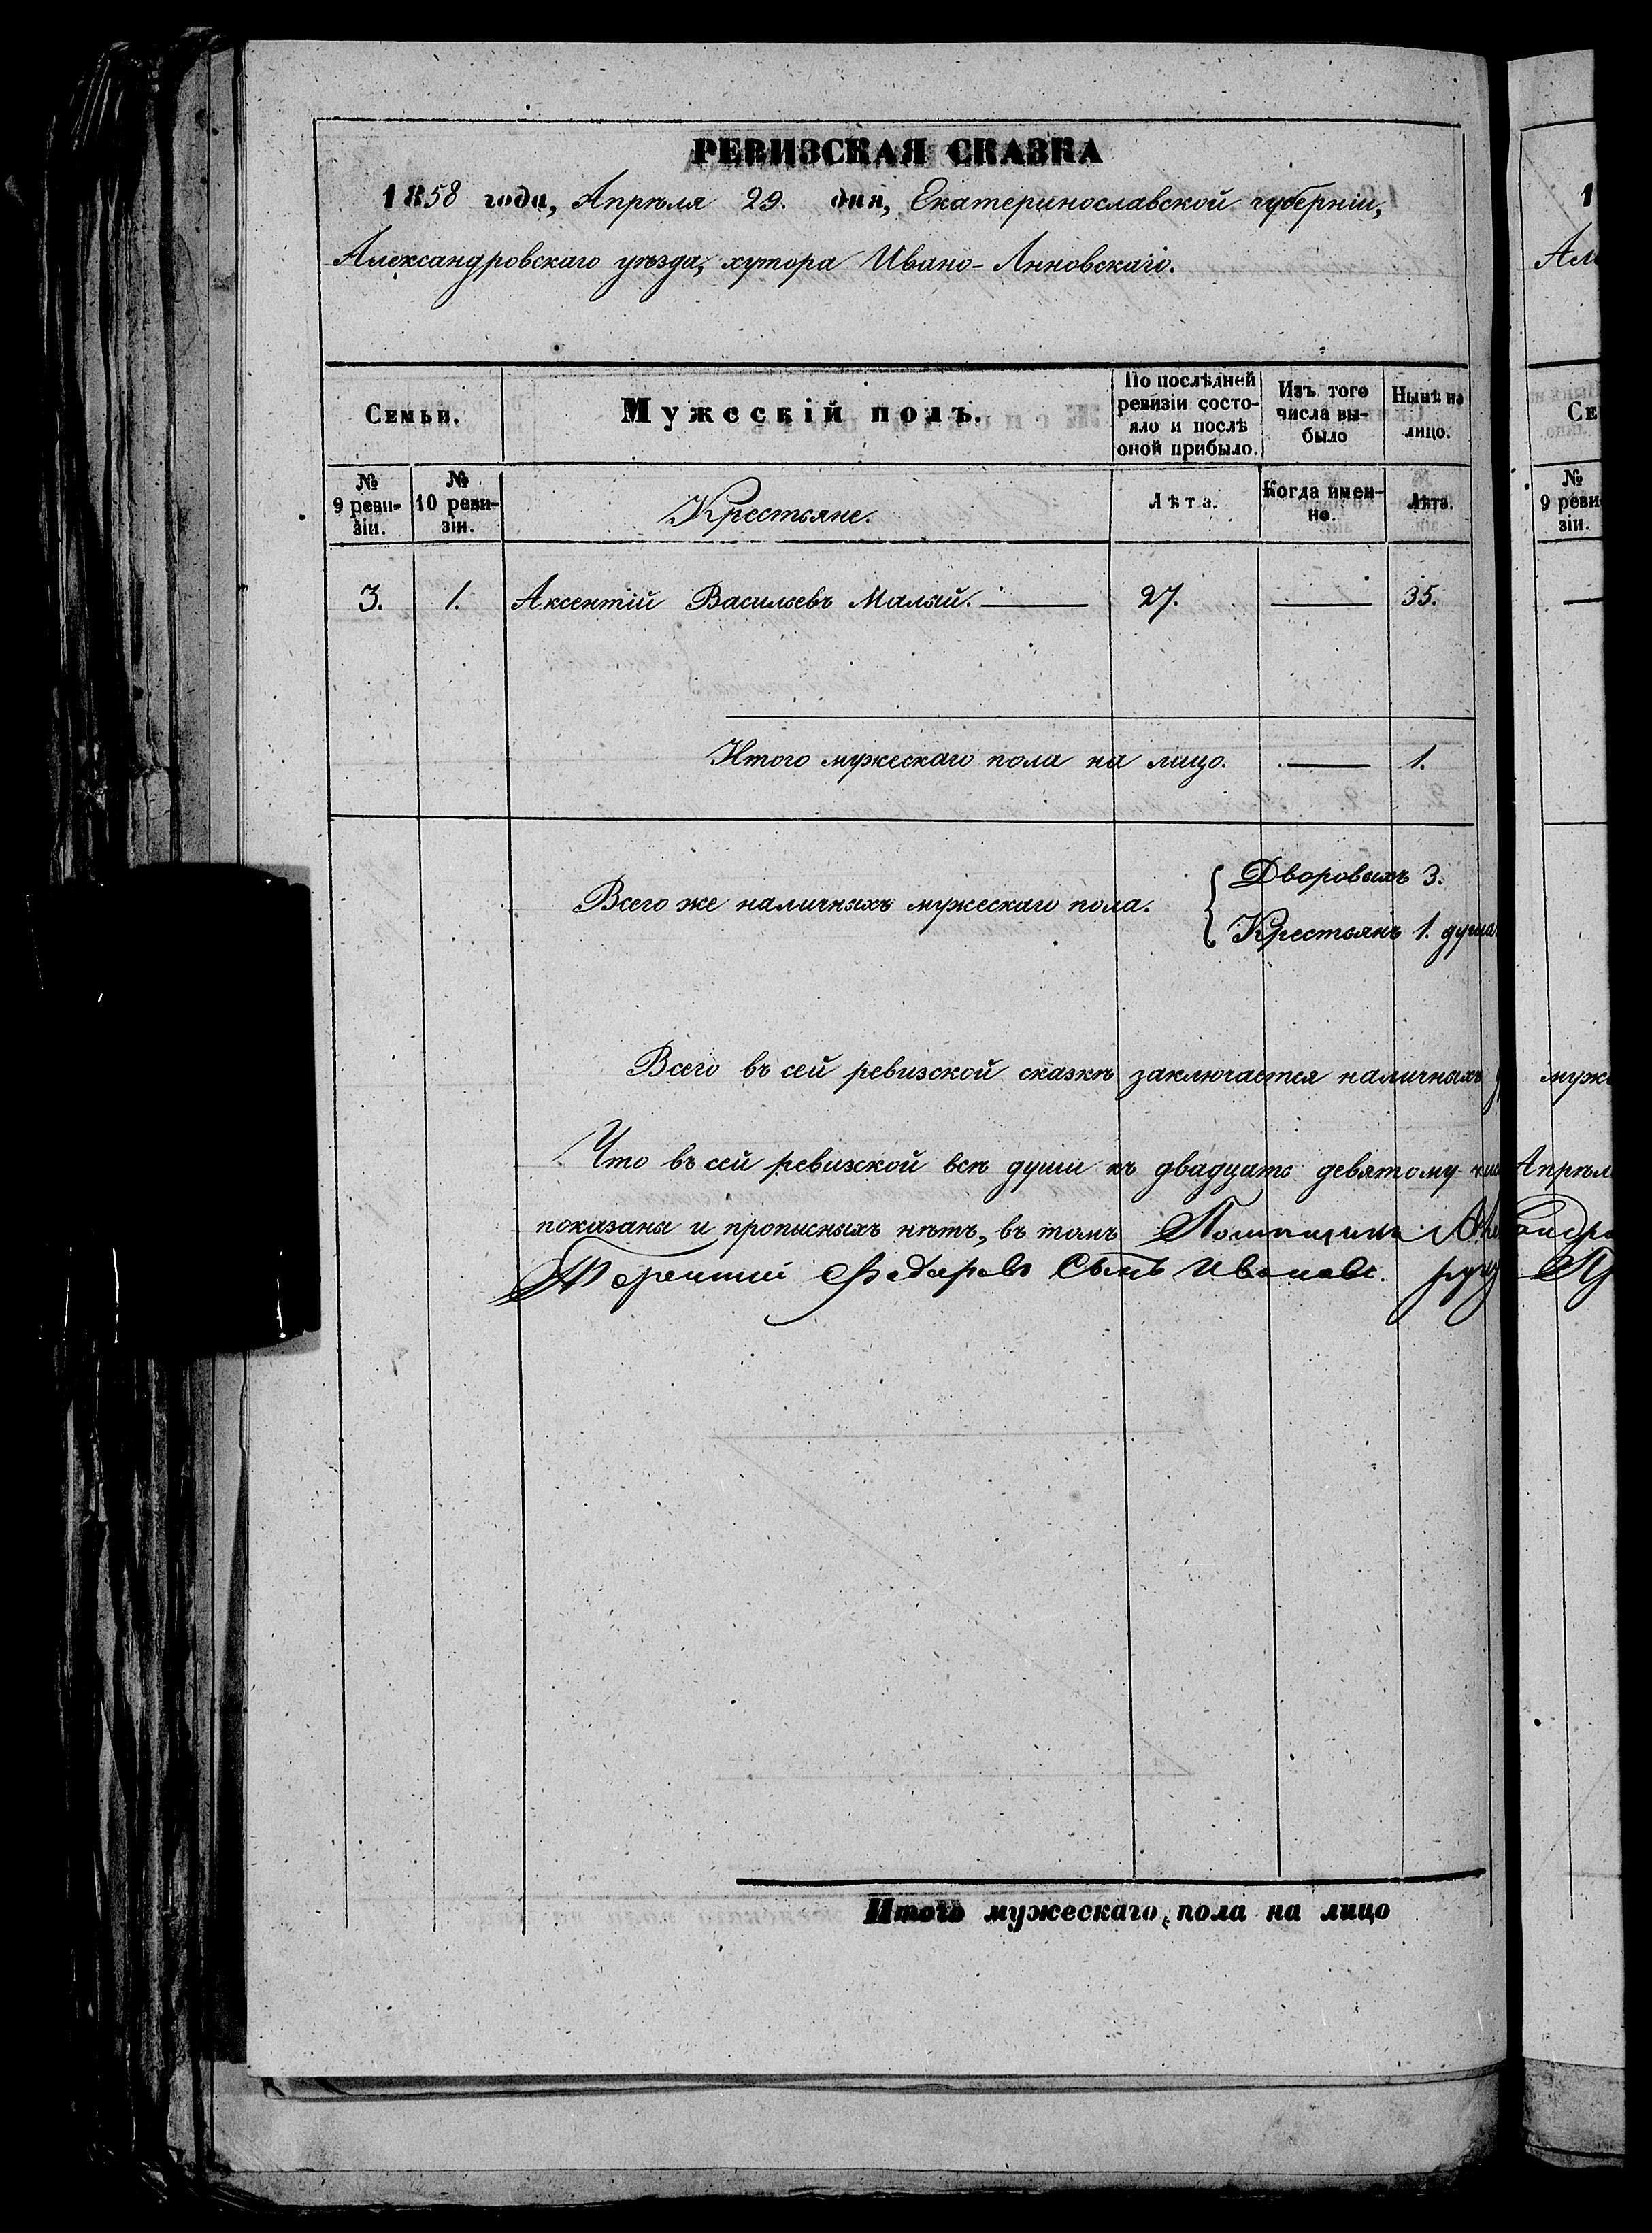 РЕВИЗСКАЯ СКАЗКА
1858 года, Апрѣля 29. дня, Екатеринославской губерніи,
Александровскаго уѣзда, хутора Ивано-Анновскаго.
Семьи.
Мужескій полъ.
По послѣдней ревизіи состояло и послѣ оной прибыло.
Изъ того числа выбыло
Нынѣ на лицо.
№ 9 ревизіи.
№ 10 ревизіи.
Крестьяне.
Лѣта.
Когда именно.
Лѣта.
3. 1. Аксентій Васильевъ Малый. — 27. — 35.
Итого мужескаго пола на лицо. — 1.
Всего же наличныхъ мужескаго пола. { Дворовыхъ 3.
Крестьянъ 1. душа.
Всего въ сей ревизской сказкѣ заключается наличныхъ
Что въ сей ревизской всѣ души къ двадцать девятому
показаны и прописныхъ нѣтъ, въ томъ
Терентий Федаровъ Сынъ Ивановъ.
Итого мужескаго пола на лицо
1
Се
№
9 реви
зіи.
Апрѣл